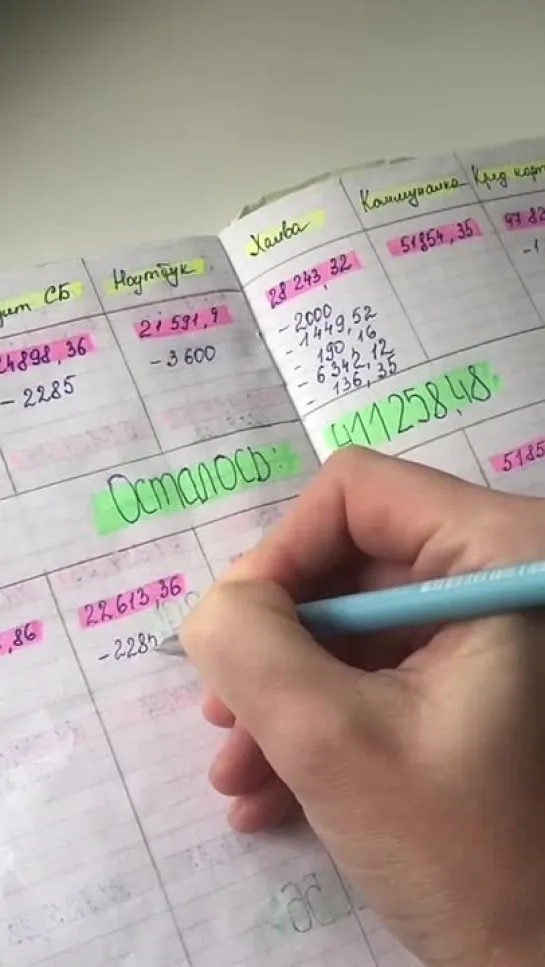 СБ
24898,36
- 2285
Ноутбук
21 591,9
- 3 600
Халва
28 243,32
- 2000
- 1449,52
- 190,16
- 6342,12
- 136,35
Коммуналка
51854,35
Кред. карт
97 82
-1
Осталось:
411258,48
,86
22 613,36
- 228
5185